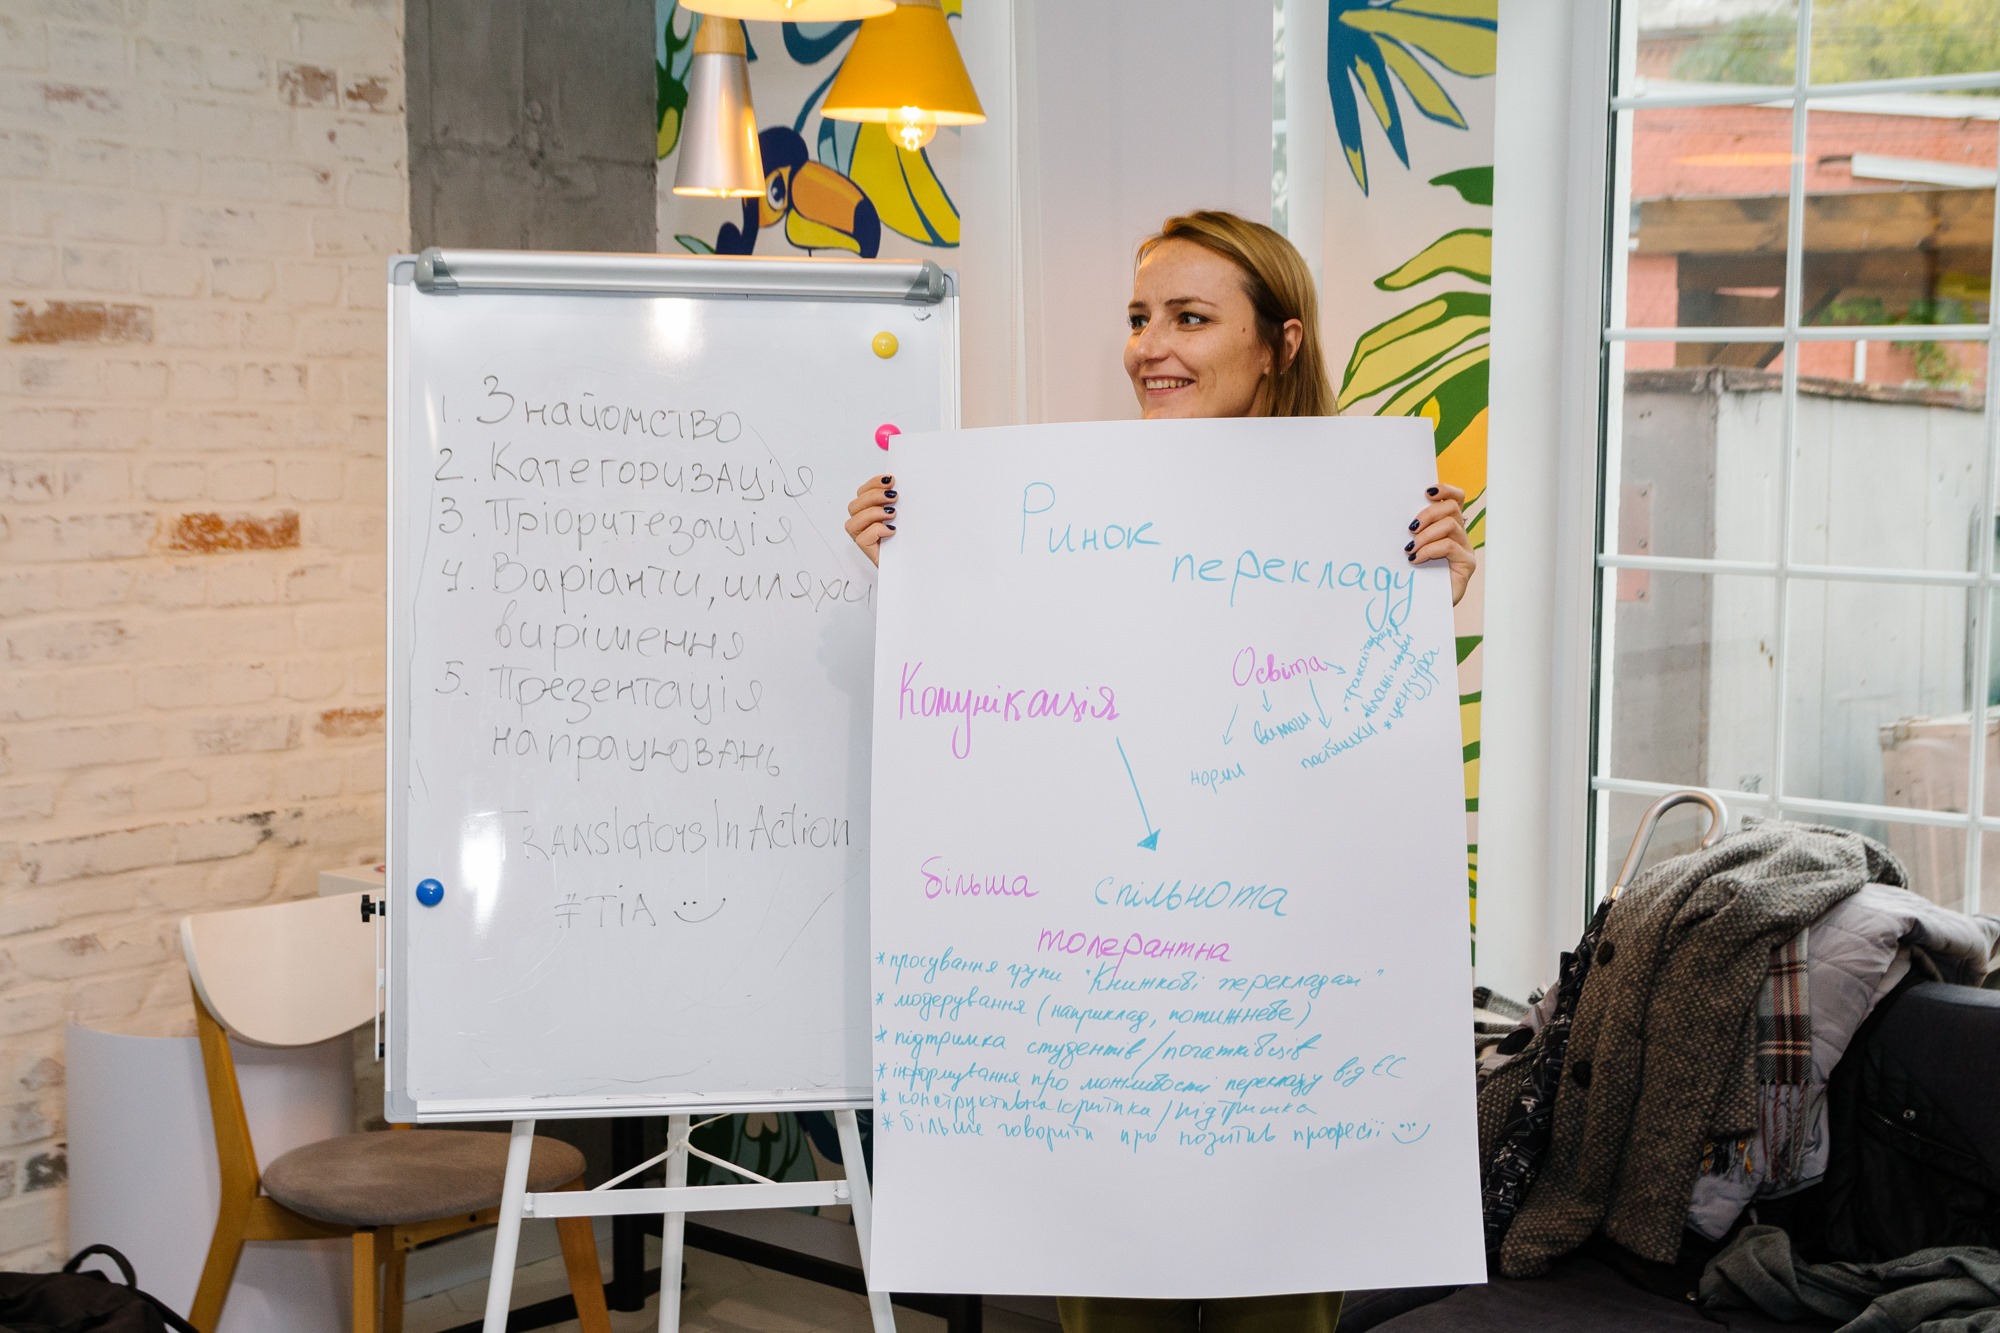 1. Знайомство
2. Категоризація
3. Пріоритезація
4. Варіанти, шляхи
вирішення
5. Презентація
напрацювань
TranslatorsInAction
#TiA
Ринок
перекладу
Комунікація
Освіта
норми
вимоги
посібники
*транслітерація
*власні назви
*цензура
більша спільнота
толерантна
*просування групи "Книжкові перекладачі"
*модерування (наприклад, потижнево)
*підтримка студентів/початківців
*інформування про можливості перекладу від ЄС
*конструктивна критика/підтримка
*більше говорити про позитив професії